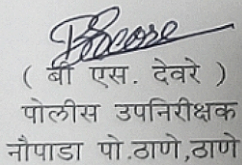 ( बी एस. देवरे )
पोलीस उपनिरीक्षक
नौपाडा पो.ठाणे,ठाणे